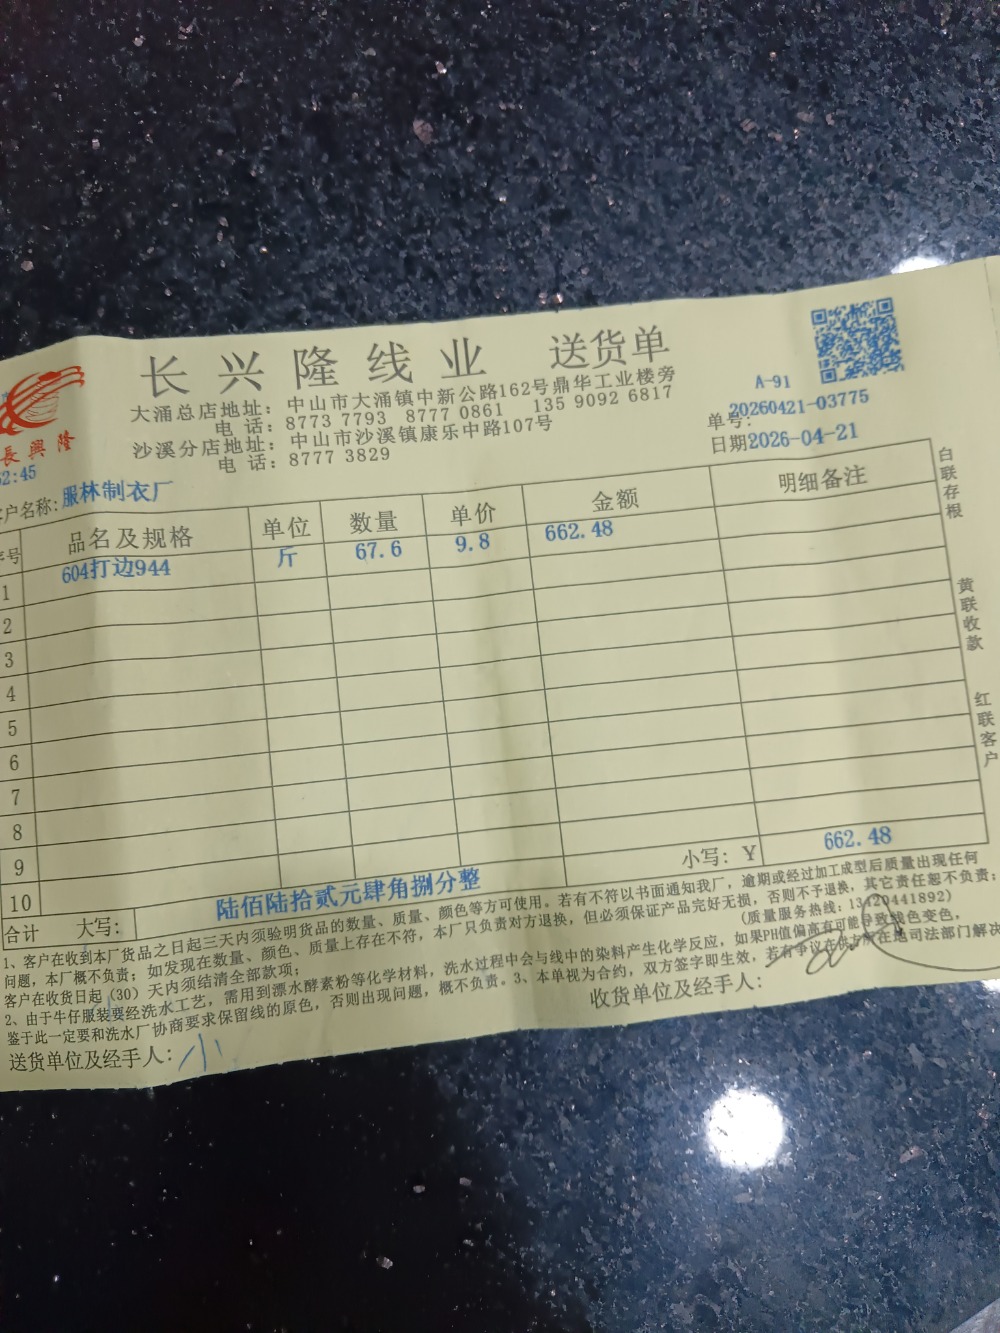 长兴隆线业 送货单
大涌总店地址：中山市大涌镇中新公路162号鼎华工业楼旁
电 话：8773 7793 8777 0861 135 9092 6817
沙溪分店地址：中山市沙溪镇康乐中路107号
电 话：8777 3829
長興隆
2:45
A-91
单号：20260421-03775
日期2026-04-21
户名称：服林制衣厂
号 品名及规格 单位 数量 单价 金额 明细备注
1 604打边944 斤 67.6 9.8 662.48
2
3
4
5
6
7
8
9
10
小写：Y 662.48
合计 大写：陆佰陆拾贰元肆角捌分整
白联存根
黄联收款
红联客户
1、客户在收到本厂货品之日起三天内须验明货品的数量、质量、颜色等方可使用。若有不符以书面通知我厂，逾期或经过加工成型后质量出现任何
问题，本厂概不负责；如发现在数量、颜色、质量上存在不符，本厂只负责对方退换，但必须保证产品完好无损，否则不予退换，其它责任恕不负责；
客户在收货日起（30）天内须结清全部款项；
（质量服务热线：13420441892）
2、由于牛仔服装要经洗水工艺，需用到漂水酵素粉等化学材料，洗水过程中会与线中的染料产生化学反应，如果PH值偏高有可能导致线色变色，
鉴于此一定要和洗水厂协商要求保留线的原色，否则出现问题，概不负责。3、本单视为合约，双方签字即生效，若有争议在供方所在地司法部门解决
送货单位及经手人：小
收货单位及经手人：